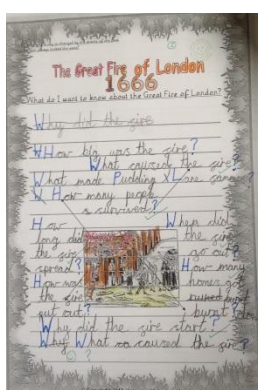 The Great Fire of London
1666
What do I want to know about the Great Fire of London?
Why did the gire
How big was the gire?
What caused the gire?
What made Pudding Lane
How many people
survived?
How
long did
the gire
spread?
How was
the gire
put out?
When did
the gire
go out?
How many
homes got
burnt?
Why did the gire start?
Why What caused the gire?
?